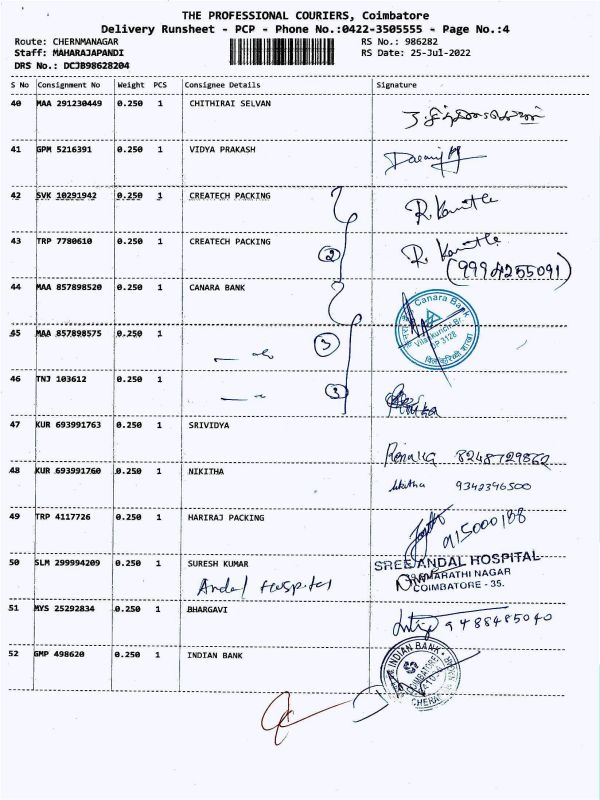 THE PROFESSIONAL COURIERS, Coimbatore
Delivery Runsheet - PCP - Phone No.:0422-3505555 - Page No.:4
Route: CHERNMANAGAR
RS No.: 986282
Staff: MAHARAJAPANDI
RS Date: 25-Jul-2022
DRS No.: DCJB98628204
S No Consignment No Weight PCS Consignee Details Signature
40 MAA 291230449 0.250 1 CHITHIRAI SELVAN
41 GPM 5216391 0.250 1 VIDYA PRAKASH
42 SVK 10291942 0.250 1 CREATECH PACKING
43 TRP 7780610 0.250 1 CREATECH PACKING
2
44 MAA 857898520 0.250 1 CANARA BANK
Canara Bank
45 MAA 857898575 0.250 1
3
DP 3128
46 TNJ 103612 0.250 1
3
47 KUR 693991763 0.250 1 SRIVIDYA
48 KUR 693991760 0.250 1 NIKITHA
9342396500
49 TRP 4117726 0.250 1 HARIRAJ PACKING
50 SLM 299994209 0.250 1 SURESH KUMAR
Andal Hospital
SREE ANDAL HOSPITAL
MARATHI NAGAR
COIMBATORE - 35.
51 MYS 25292834 0.250 1 BHARGAVI
9488485040
52 GMP 498620 0.250 1 INDIAN BANK
INDIAN BANK